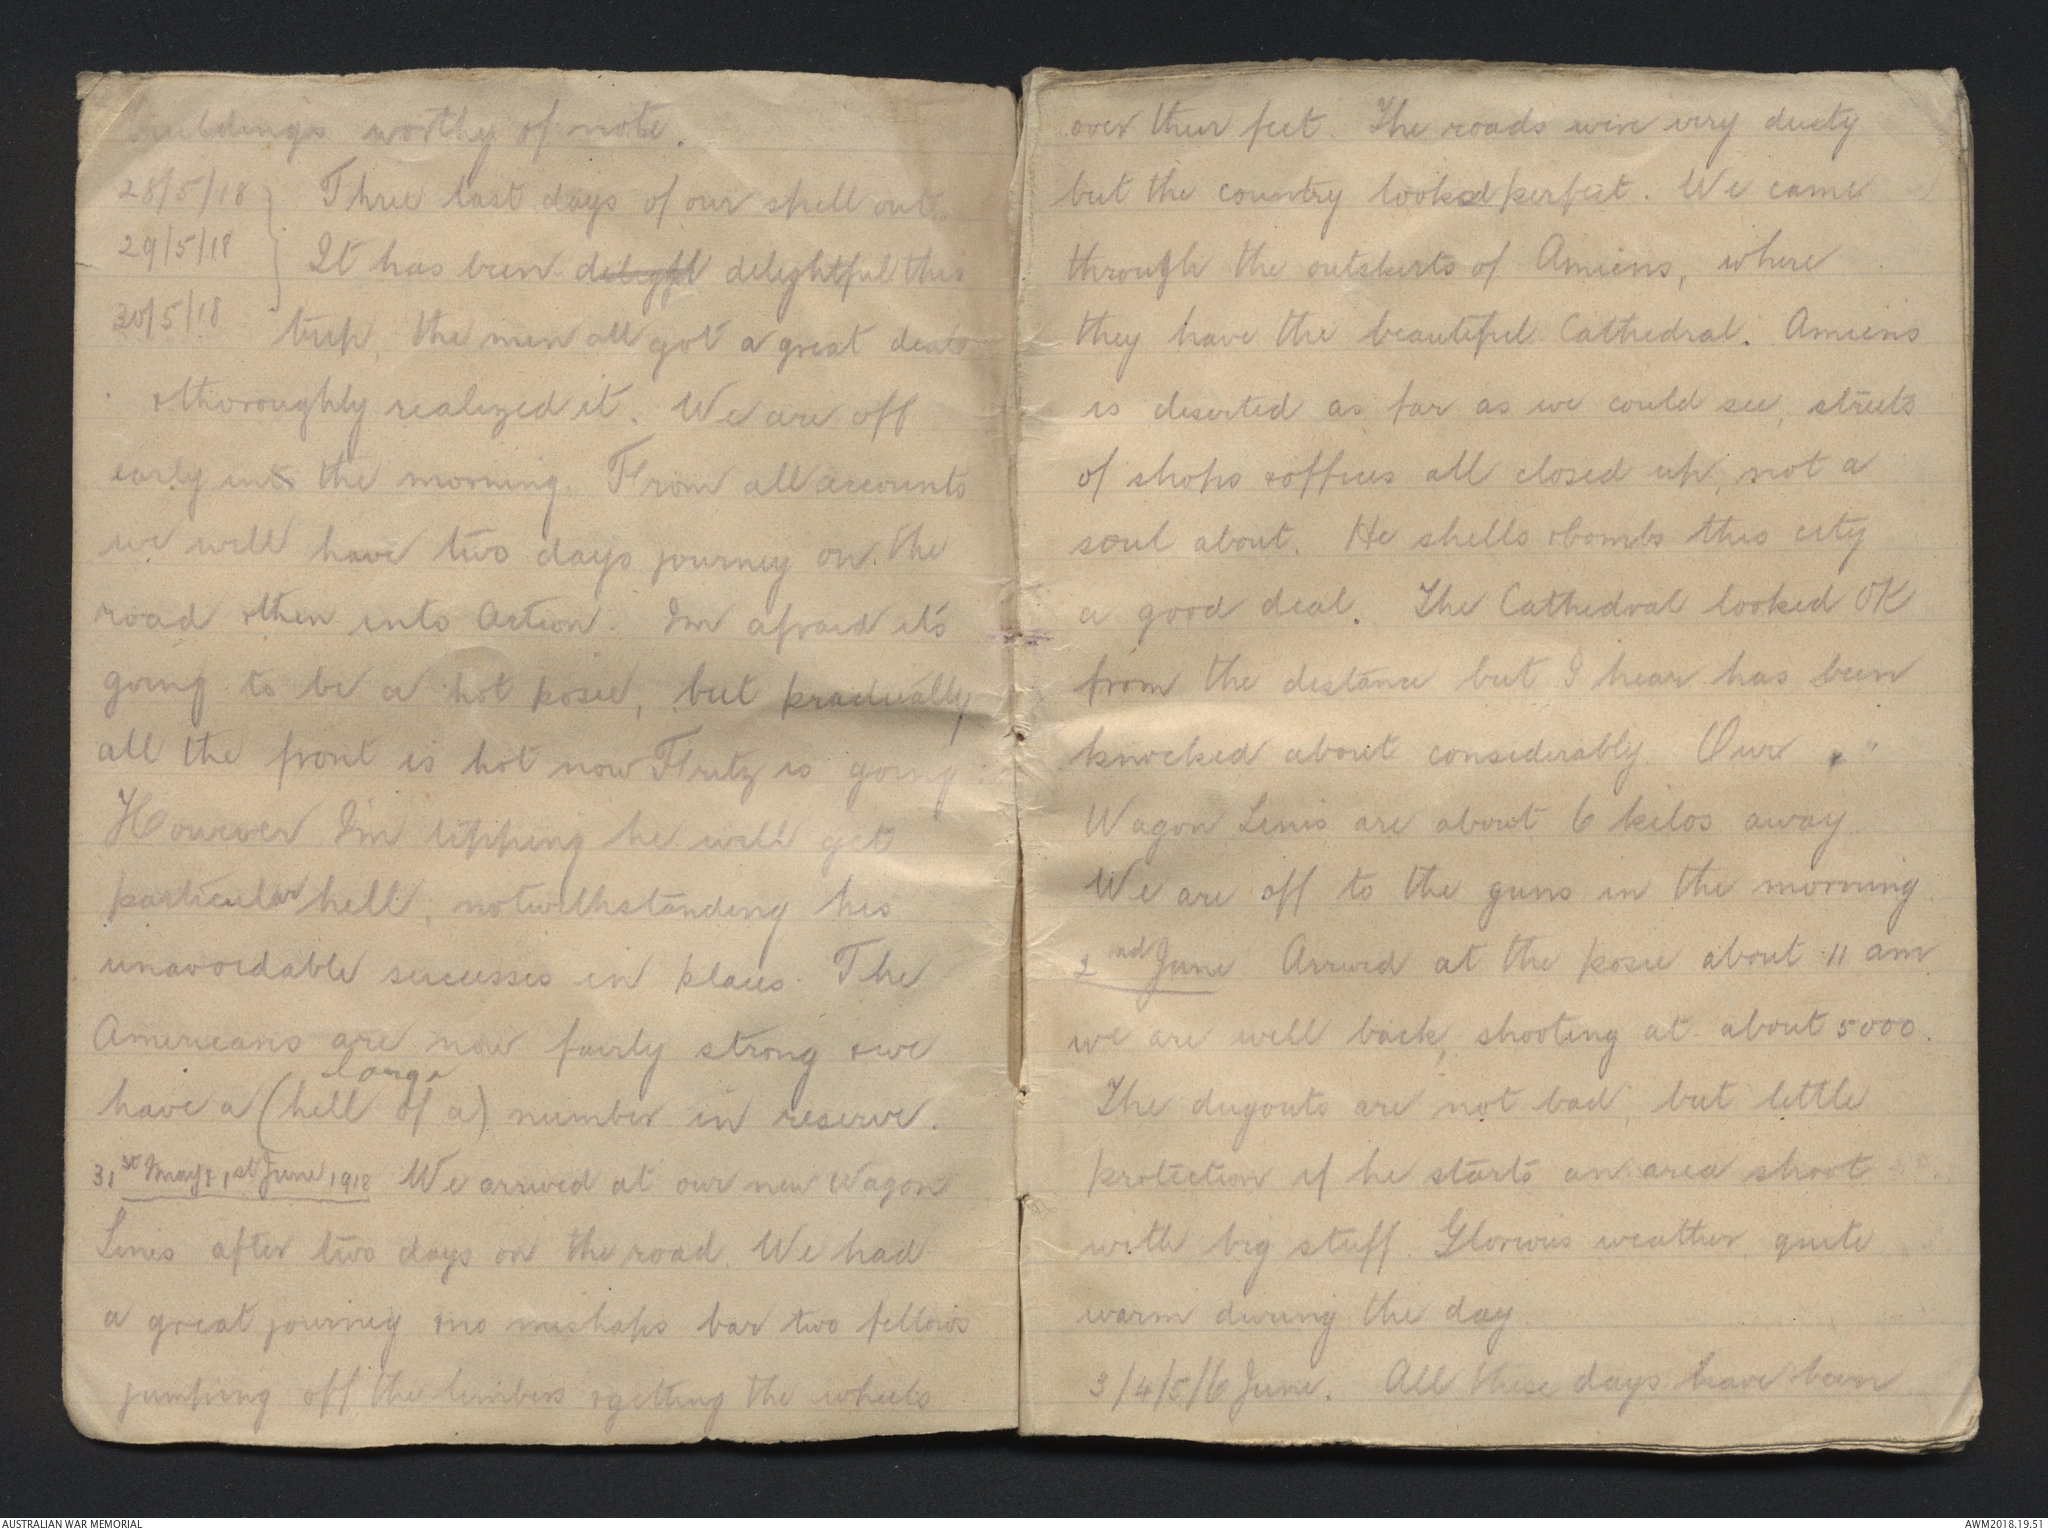 buildings worthy of note.
28/5/18 } Three last days of our spell out.
29/5/18 It has been deligfl delightful this
30/5/18 trip, the men all got a great deal
& thoroughly realized it. We are off
early in the morning. From all accounts
we will have two days journey on the
road & then into Action. I'm afraid it's
going to be a hot posie, but pradually
all the front is hot now Fritz is going
However I'm tipping he will get
particular hell, notwithstanding his
unavoidable successes in places. The
Americans are now fairly strong & we
large
have a (hell of a) number in reserve.
31st May & 1st June 1918 We arrived at our new Wagon
Lines after two days on the road. We had
a great journey & no mishaps bar two fellows
jumping off the limbers & getting the wheels
over their feet. The roads were very dusty
but the country looked perfect. We came
through the outskirts of Amiens, where
they have the beautiful Cathedral. Amiens
is deserted as far as we could see, streets
of shops & offices all closed up, not a
soul about. He shells & bombs this city
a good deal. The Cathedral looked OK
from the distance but I hear has been
knocked about considerably. Our
Wagon Lines are about 6 kilos away
We are off to the guns in the morning.
2nd June Arrived at the posie about 11 am
we are well back, shooting at about 5000.
The dugouts are not bad, but little
protection if he starts an area shoot
with big stuff. Glorious weather, quite
warm during the day
3/4/5/6 June. All these days have been
AUSTRALIAN WAR MEMORIAL
AWM2018.19.51